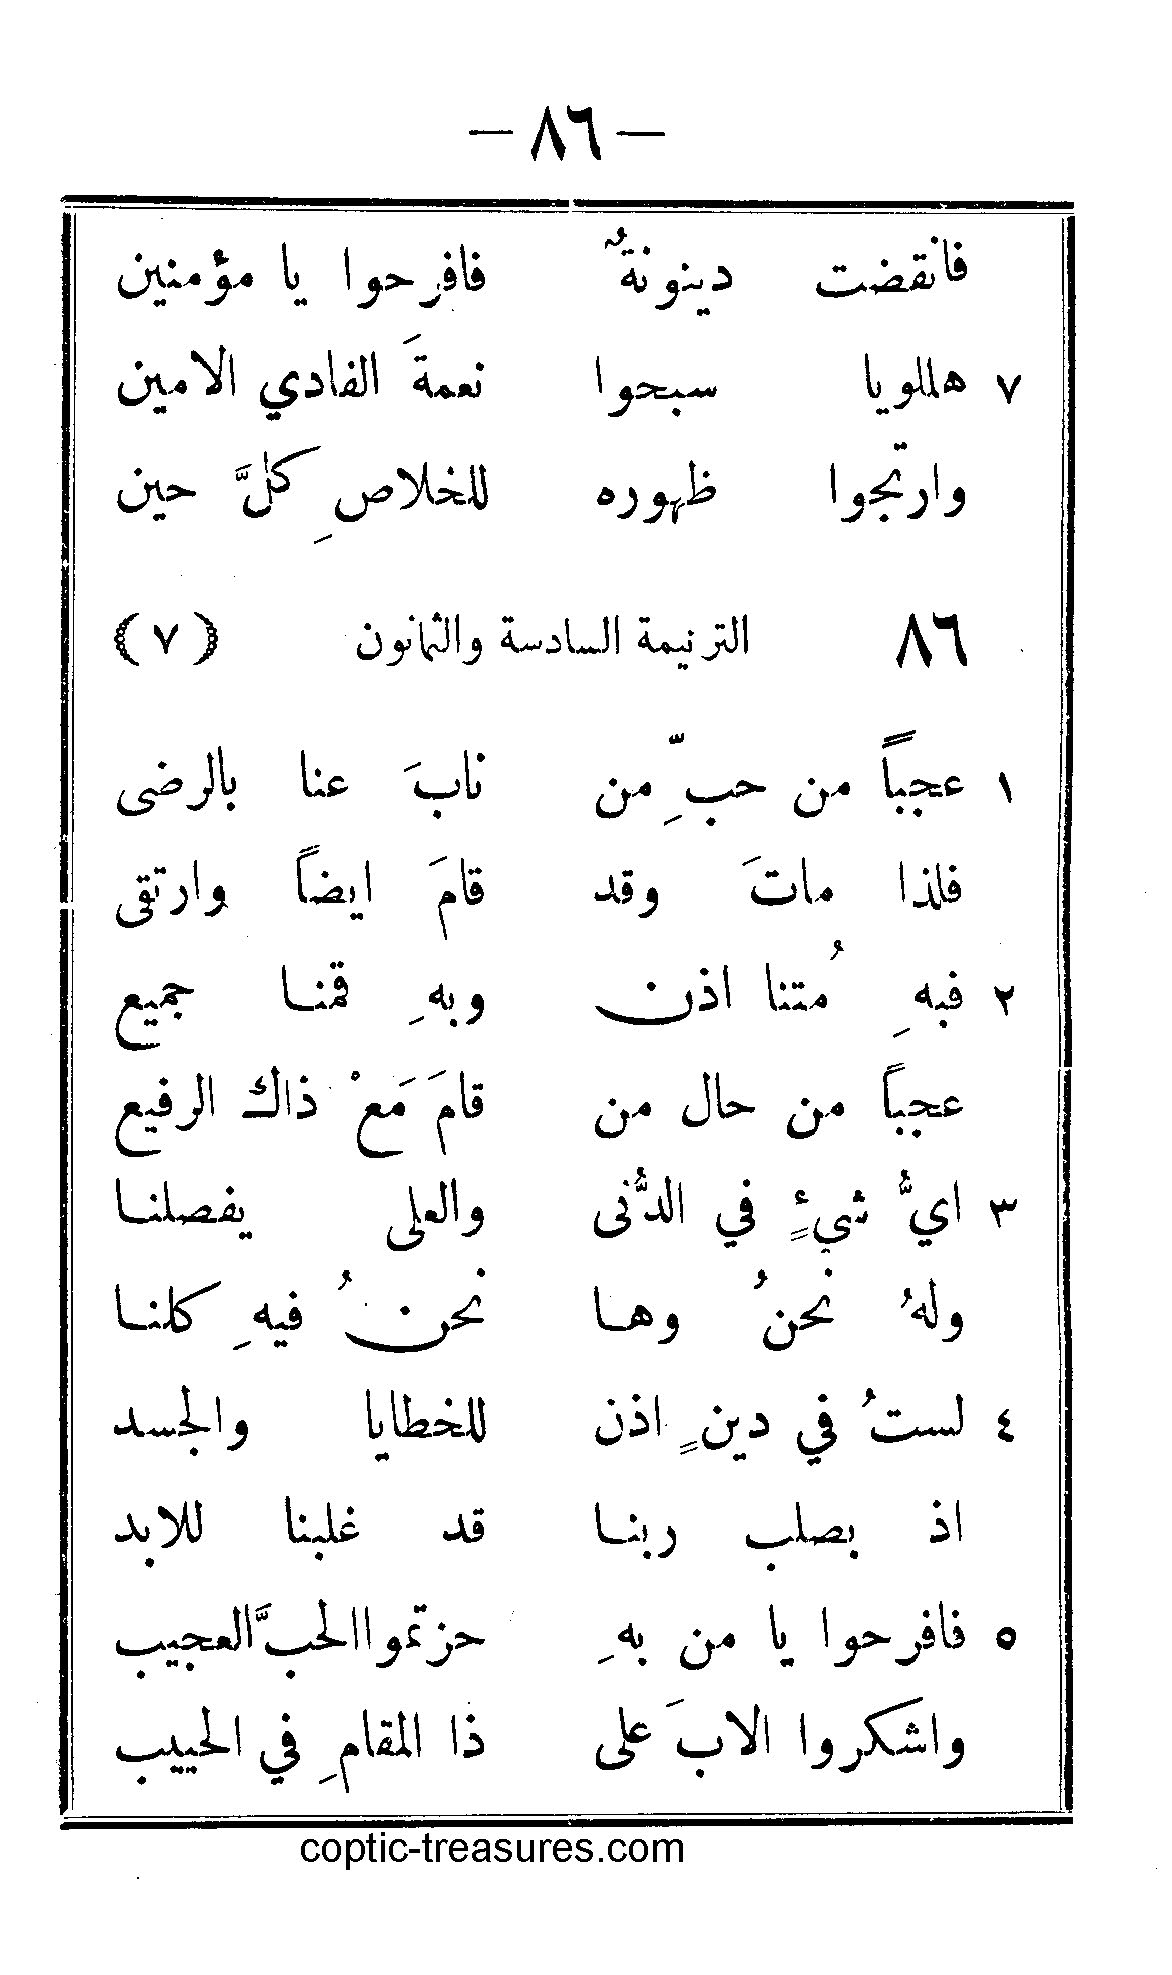 — ٨٦ —
فانقضت دينونةٌ فافرحوا يا مؤمنين
٧ هللويا سبحوا نعمةَ الفادي الامين
وارتجوا ظهوره للخلاصِ كلَّ حين
٨٦ الترنيمة السادسة والثمانون (٧)
١ عجباً من حبِّ من نابَ عنا بالرضى
فلذا ماتَ وقد قامَ ايضاً وارتقى
٢ فبهِ مُتنا اذن وبهِ قمنا جميع
عجباً من حال من قامَ مَعْ ذاك الرفيع
٣ ايُّ شيءٍ في الدُّنى والعلى يفصلنا
ولهُ نحنُ وها نحنُ فيهِ كلنا
٤ لستُ في دينٍ اذن للخطايا والجسد
اذ بصلب ربنا قد غلبنا للابد
٥ فافرحوا يا من بهِ حزتموا الحبَّ العجيب
واشكروا الابَ على ذا المقامِ في الحبيب
coptic-treasures.com